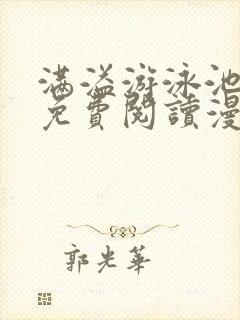 满溢游泳池
免費閱讀漫
郭光華